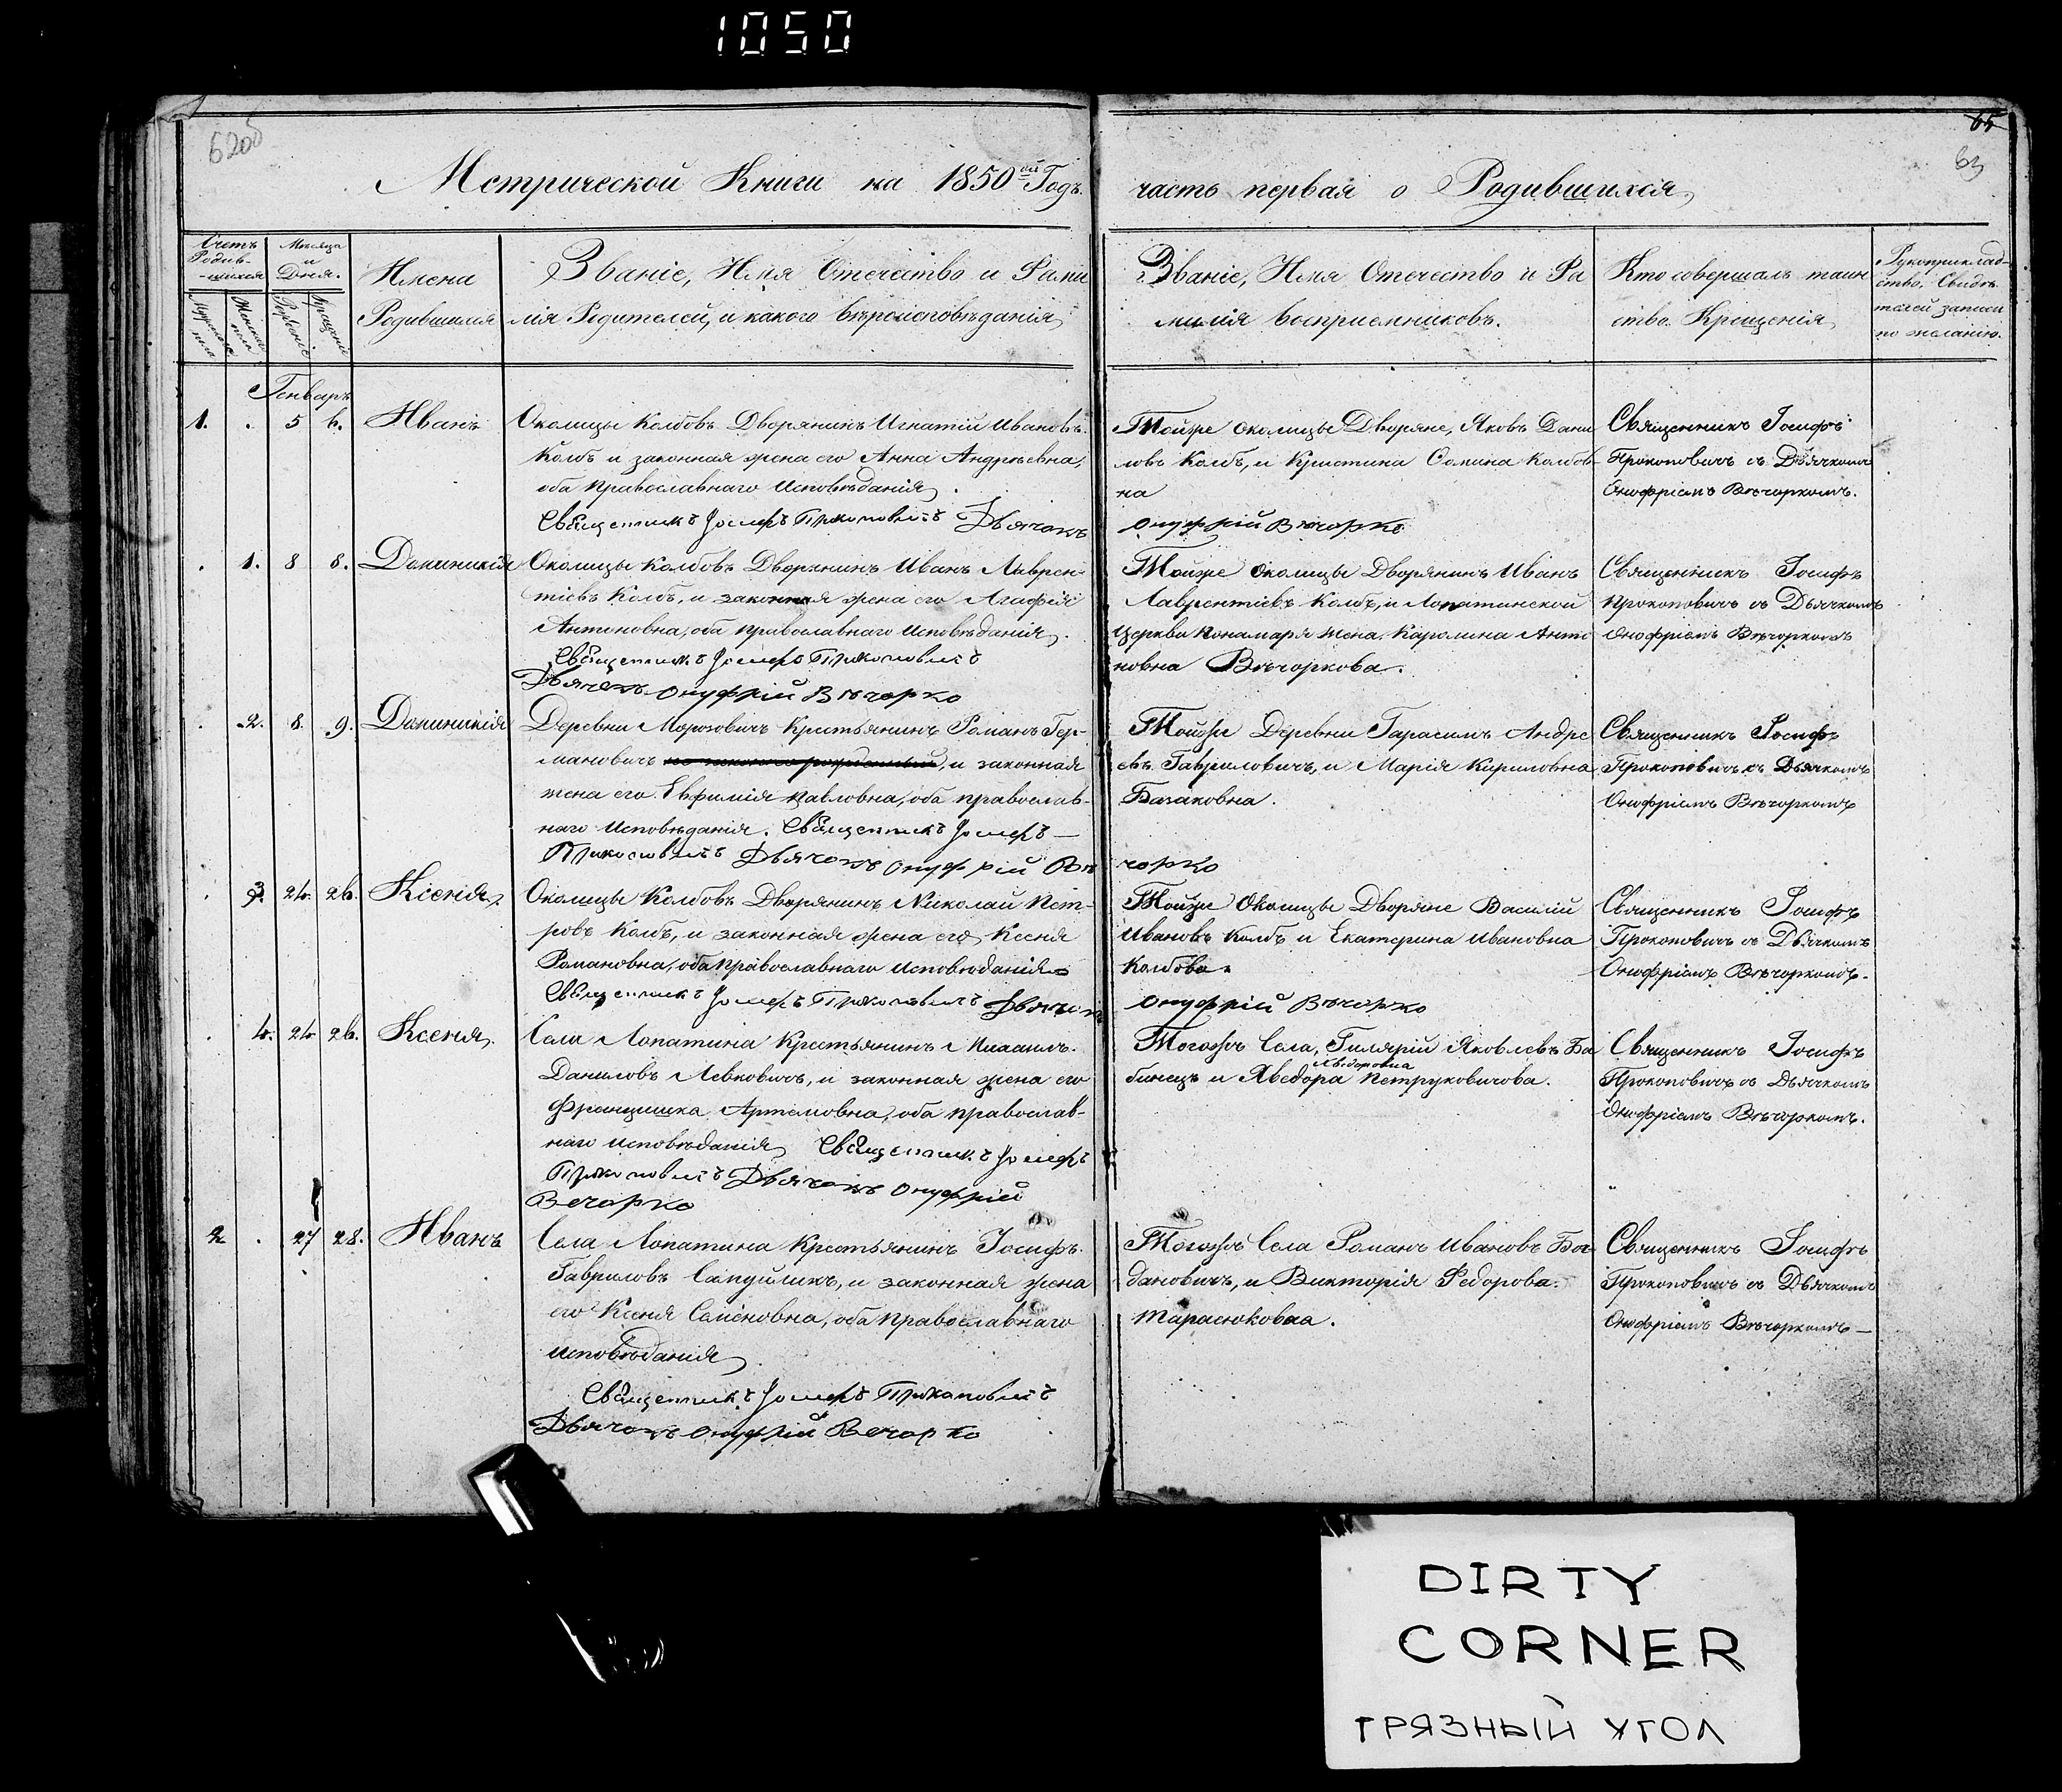 1050
620об
65
63
Метрической Книги на 1850ый Годъ. часть первая о Родившихся
Счетъ Родив-шихся
Мѣсяцъ и Дня.
Имена Родившихся
Званіе, Имя Отечество и Фами
лія Родителей, и какого вѣроисповѣданія
Званіе, Имя Отечество и Фа
милія восприемниковъ.
Кто совершалъ таин
ство Крещенія
Рукоприклад-
ство Свидѣ-
телей записи
по желанію.
Мужеска пола
Женска пола
Рожденіе
Крещеніе
Генварь
1. . 5 6. Иванъ
Околицы Колбовъ Дворянинъ Игнатій Ивановъ
Колбъ и законная жена его Анна Андреевна,
оба Православнаго Исповѣданія.
Священникъ Іосифъ Прокоповичъ Дьячокъ
Тойже околицы Дворяне, Яковъ Дани
ловъ Колбъ, и Кристина Сомина Колбов-
на
Онуфрій Вѣчорко
Священникъ Іосифъ
Прокоповичъ съ Дьячкомъ
Онофріемъ Вѣчоркомъ.
. 1. 8 8. Доминикія
Околицы Колбовъ Дворянинъ Иванъ Лаврен-
тіевъ Колбъ, и законная жена его Агафія
Антоновна, оба православнаго исповѣданія.
Священникъ Іосифъ Прокоповичъ
Дьячокъ Онуфрій Вѣчорко
Тойже околицы Дворянинъ Иванъ
Лаврентіевъ Колбъ, и Лопатинской
Церкви Понамаря жена Каролина Анто
новна Вѣчоркова.
Священникъ Іосифъ
Прокоповичъ съ Дьячкомъ
Онофріемъ Вѣчоркомъ
. 2. 8. 9. Доминикія
Деревни Морозовичъ Крестьянинъ Романъ Гер-
мановичъ, и законная
жена его Евфимія Павловна, оба православ-
наго Исповѣданія. Священникъ Іосифъ
Прокоповичъ Дьячокъ Онуфрій Вѣ
Тойже Деревни Гарасимъ Андре
евъ Гавриловичъ, и Марія Кириловна
Баваковна.
чорко
Священникъ Іосифъ
Прокоповичъ съ Дьячкомъ
Онофріемъ Вѣчоркомъ
. 3. 24. 26. Ксенія
Околицы Колбовъ Дворянинъ Николай Пет-
ровъ Колбъ, и законная жена его Ксенія
Романовна, оба православнаго исповѣданія
Священникъ Іосифъ Прокоповичъ Дьячокъ
Тойже Околицы Дворяне Василій
Ивановъ Колбъ и Екатерина Ивановна
Колбова
Онуфрій Вѣчорко
Священникъ Іосифъ
Прокоповичъ съ Дьячкомъ
Онофріемъ Вѣчоркомъ.
. 4. 24 26. Ксенія.
Села Лопатина Крестьянинъ
Даниловъ Левковичъ, и законная жена его
Францишка Артемовна, оба православ-
наго исповѣданія Священникъ Іосифъ
Прокоповичъ Дьячокъ Онуфрій
Вечорко
Тогожъ Села, Гилярій Яковлевъ Ба
бинецъ и Яведора Ѳедоровна Петруковичова.
Священникъ Іосифъ
Прокоповичъ съ Дьячкомъ
Онофріемъ Вѣчоркомъ.
2 . 27 28. Иванъ
Села Лопатина Крестьянинъ Іосифъ
Гавриловъ Сапушикъ, и законная жена
его Ксенія Семеновна, оба православнаго
исповѣданія
Священникъ Іосифъ Прокоповичъ
Дьячокъ Онуфрій Вечорко
Тогожъ Села Романъ Ивановъ Бог
дановичъ, и Викторія Федорова
Тарасюковна.
Священникъ Іосифъ
Прокоповичъ съ Дьячкомъ
Онофріемъ Вѣчоркомъ
DIRTY
CORNER
ГРЯЗНЫЙ УГОЛ